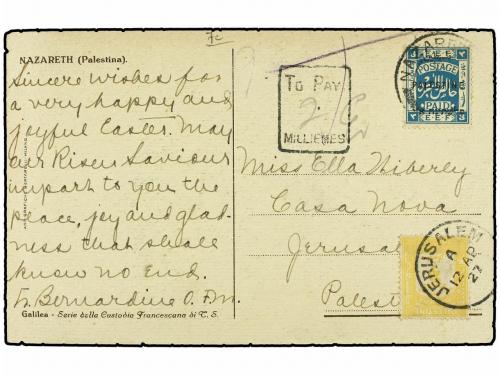 NAZARETH (Palestina).
Sincere wishes for
a very happy and
joyful Easter. May
our Risen Saviour
impart to you the
peace, joy and glad-
ness that shall
know no End.
Fr. Bernardine O.F.M.
Galilea - Serie della Custodia Francescana di T. S.
TO PAY
MILLIEMES
NAZARE
E.E.F.
POSTAGE
PAID
Miss Ella Hiberly
Casa Nova
Jerusal
Palest
JERUSALEM
A
12 AP
27